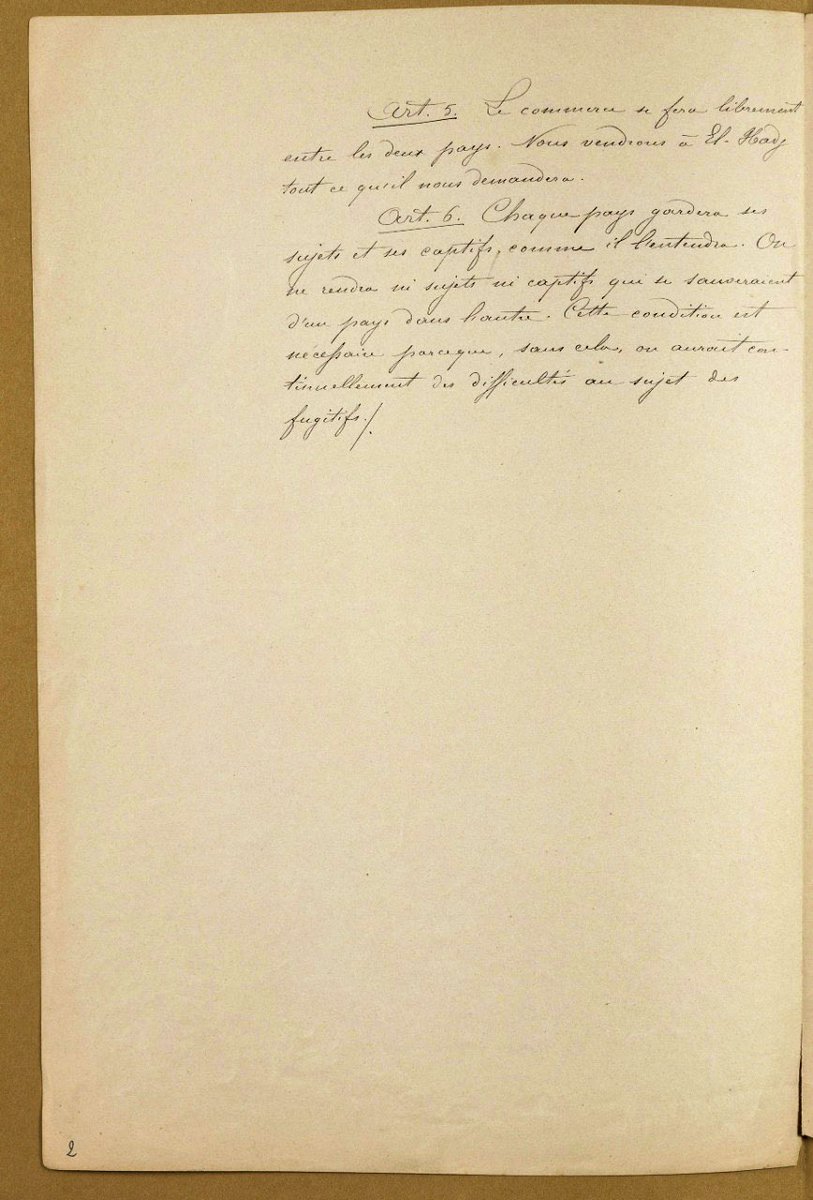 Art. 5. Le commerce se fera librement
entre les deux pays. Nous vendrons à El-Hadj
tout ce qu'il nous demandera.
Art. 6. Chaque pays gardera ses
sujets et ses captifs, comme il l'entendra. On
ne rendra ni sujets ni captifs qui se sauveraient
d'un pays dans l'autre. Cette condition est
nécessaire parceque, sans cela, on aurait con-
tinuellement des difficultés au sujet des
fugitifs./.
2